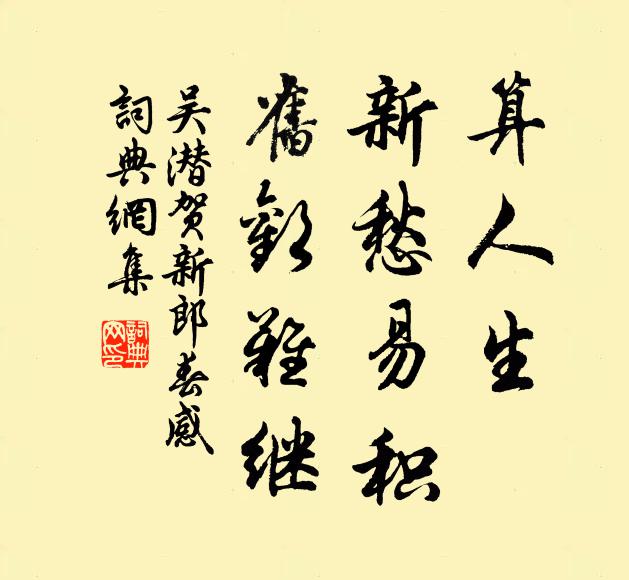 算人生
新愁易积
舊歡難继
吴潜贺新郎春感
詞典網集
詞典網印